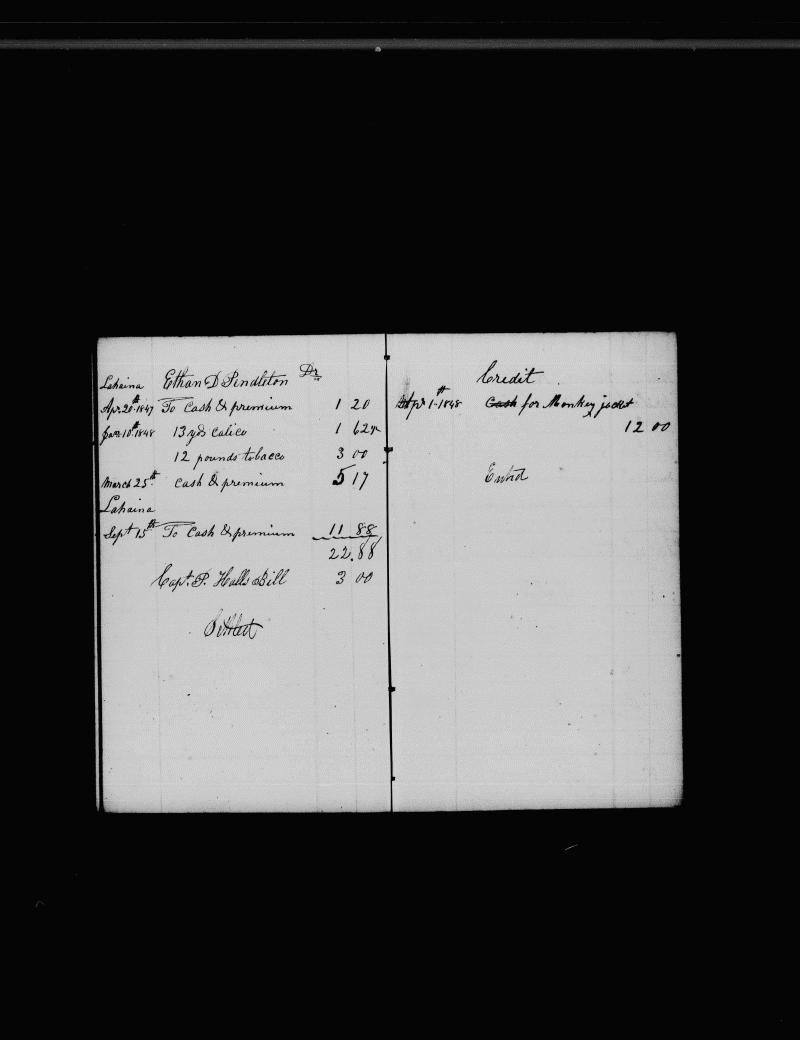 Lahaina Ethan D Pendleton Dr
Apr 20th 1847 To Cash & premium 1 20
Jan 10th 1848 13 yds calico 1 62½
12 pounds tobacco 3 00
March 25th Cash & premium 5 17
Lahaina
Sept 15th To Cash & premium 11 88
22.88
Capt. P. Halls Bill 3 00
Settled
Credit
Apr 1st 1848 Cash for Monkey jacket
12 00